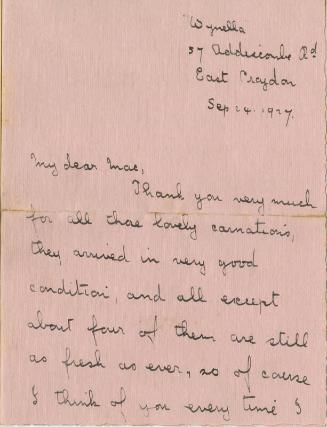 Wynella
57 Addiscombe Rd
East Croydon
Sep 24. 1927.
My dear Mac,
Thank you very much
for all those lovely carnations,
they arrived in very good
condition, and all except
about four of them are still
as fresh as ever, so of course
I think of you every time I